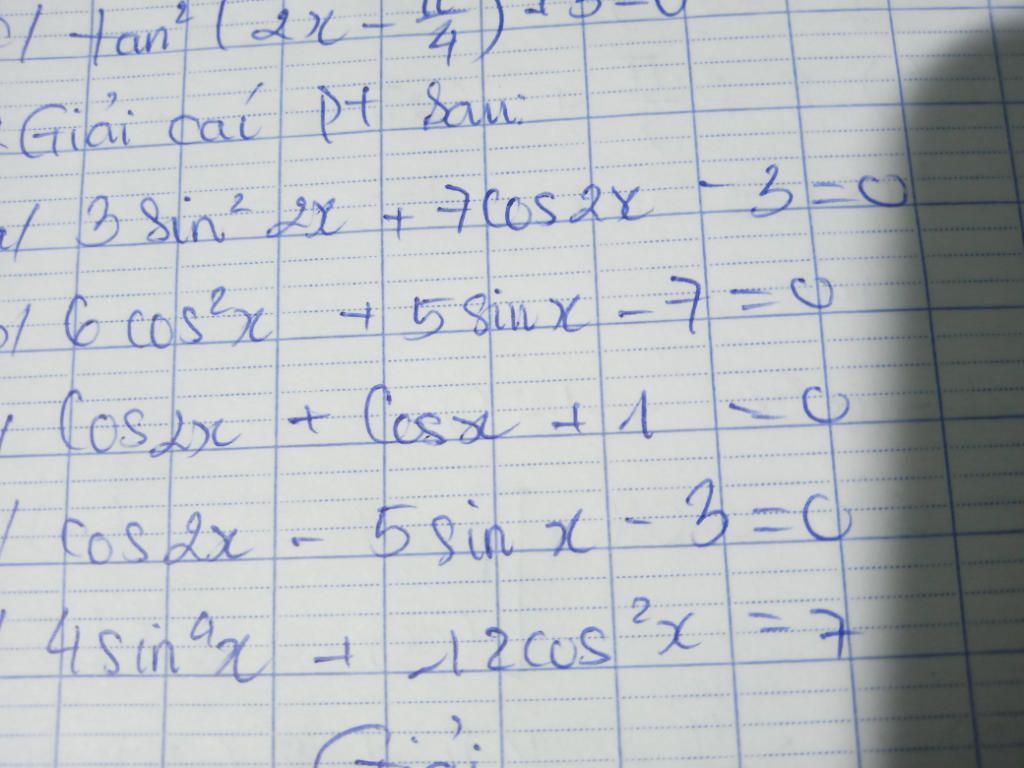 c/ tan² (2x - π/4) + 3 = 0
Giải caí pt sau:
a/ 3 sin² 2x + 7cos2x - 3 = 0
b/ 6 cos²x + 5 sinx - 7 = 0
/ Cos2x + Cosx + 1 = 0
/ cos2x - 5 sin x - 3 = 0
/ 4 sin⁴x + 12cos²x = 7
Giải